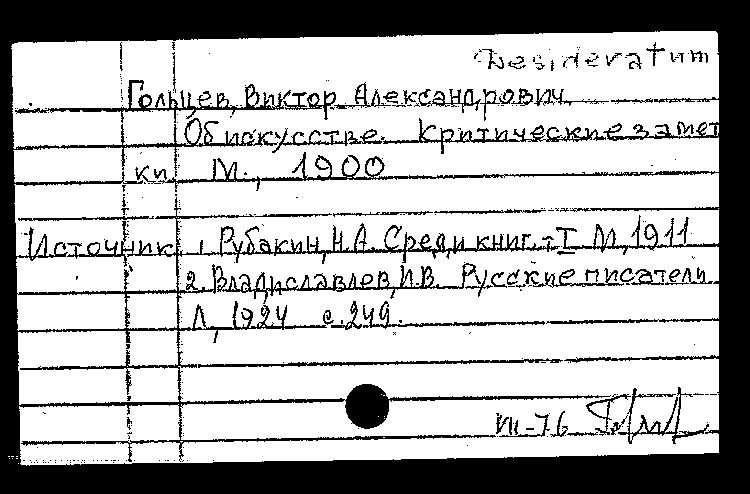 Desideratum
Гольцев, Виктор Александрович.
Об искусстве. Критические замет
ки. М., 1900
Источник: 1. Рубакин, Н.А. Среди книг. т I М, 1911
2. Владиславлев, И.В. Русские писатели
Л, 1924 с.249.
VII-76